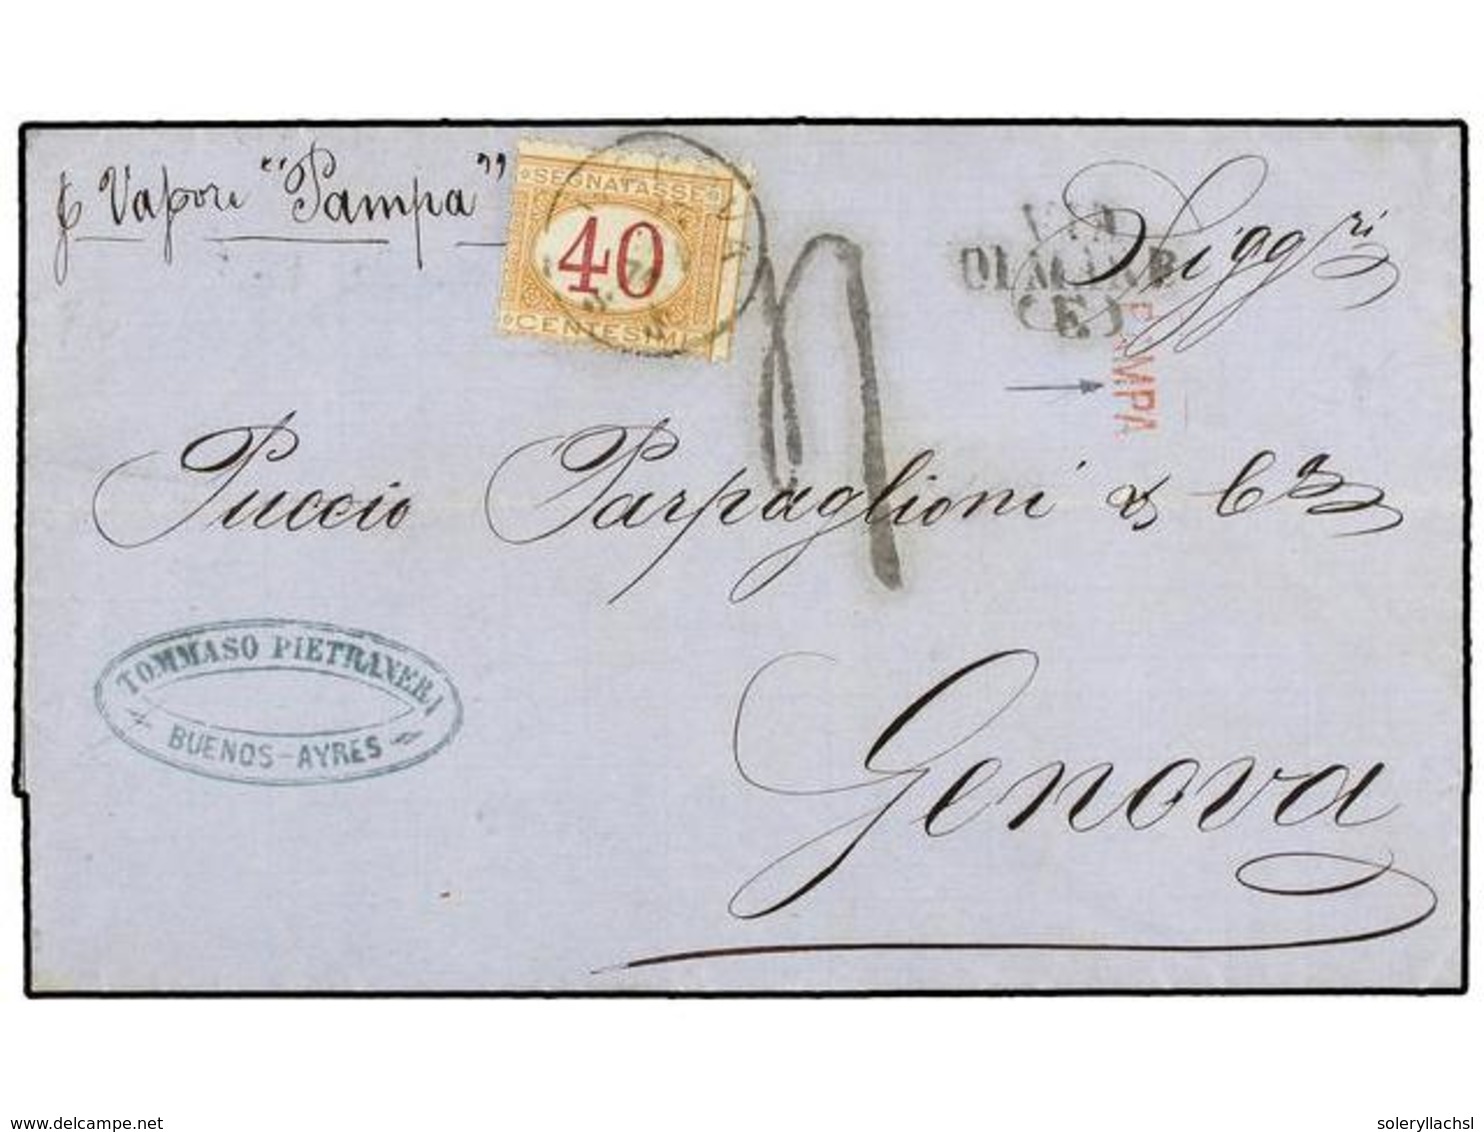 p Vapore "Pampa"
SEGNATASSE
40
CENTESIMI
4
VIA
DI MARE
(E)
PAMPA
Siggri
Puccio Parpaglioni & Ca
TOMMASO PIETRANERA
BUENOS-AYRES
Genova
delcampe.net
soleryllachsl